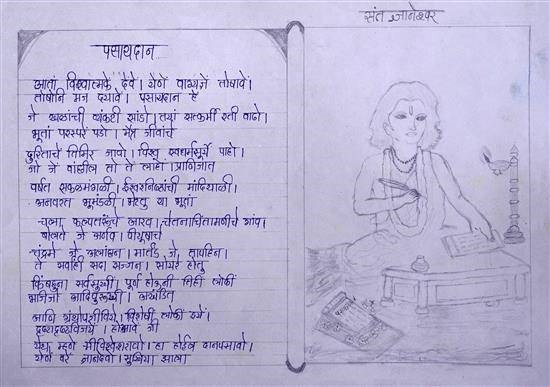 संत ज्ञानेश्वर
पसायदान
आतां विश्वात्मकें देवें। येणें वाग्यज्ञें तोषावें।
तोषोनि मज द्यावें। पसायदान हें
जे खळांची व्यंकटी सांडो। तयां सत्कर्मी रती वाढो।
भूतां परस्परें पडो। मैत्र जीवांचे
दुरिताचें तिमिर जावो। विश्व स्वधर्मसूर्यें पाहो।
जो जे वांछील तो तें लाहो। प्राणिजात
वर्षत सकळमंगळीं। ईश्वरनिष्ठांची मांदियाळी।
अनवरत भूमंडळीं। भेटतु या भूतां
चला कल्पतरूंचे आरव। चेतनाचिंतामणीचें गांव।
बोलते जे अर्णव। पीयूषांचे
चंद्रमे जे अलांछन। मार्तंड जे तापहीन।
ते सर्वांही सदा सज्जन। सोयरे होतु
किंबहुना सर्वसुखीं। पूर्ण होऊनी तिहीं लोकीं
भजिजो आदिपुरुखीं। अखंडित
आणि ग्रंथोपजीविये। विशेषीं लोकीं इयें।
दृष्टादृष्टविजयें। होआवे जी
येथ म्हणे श्रीविश्वेश्वरावो। हा होईल दानपसावो।
येणें वरें ज्ञानदेवो। सुखिया झाला